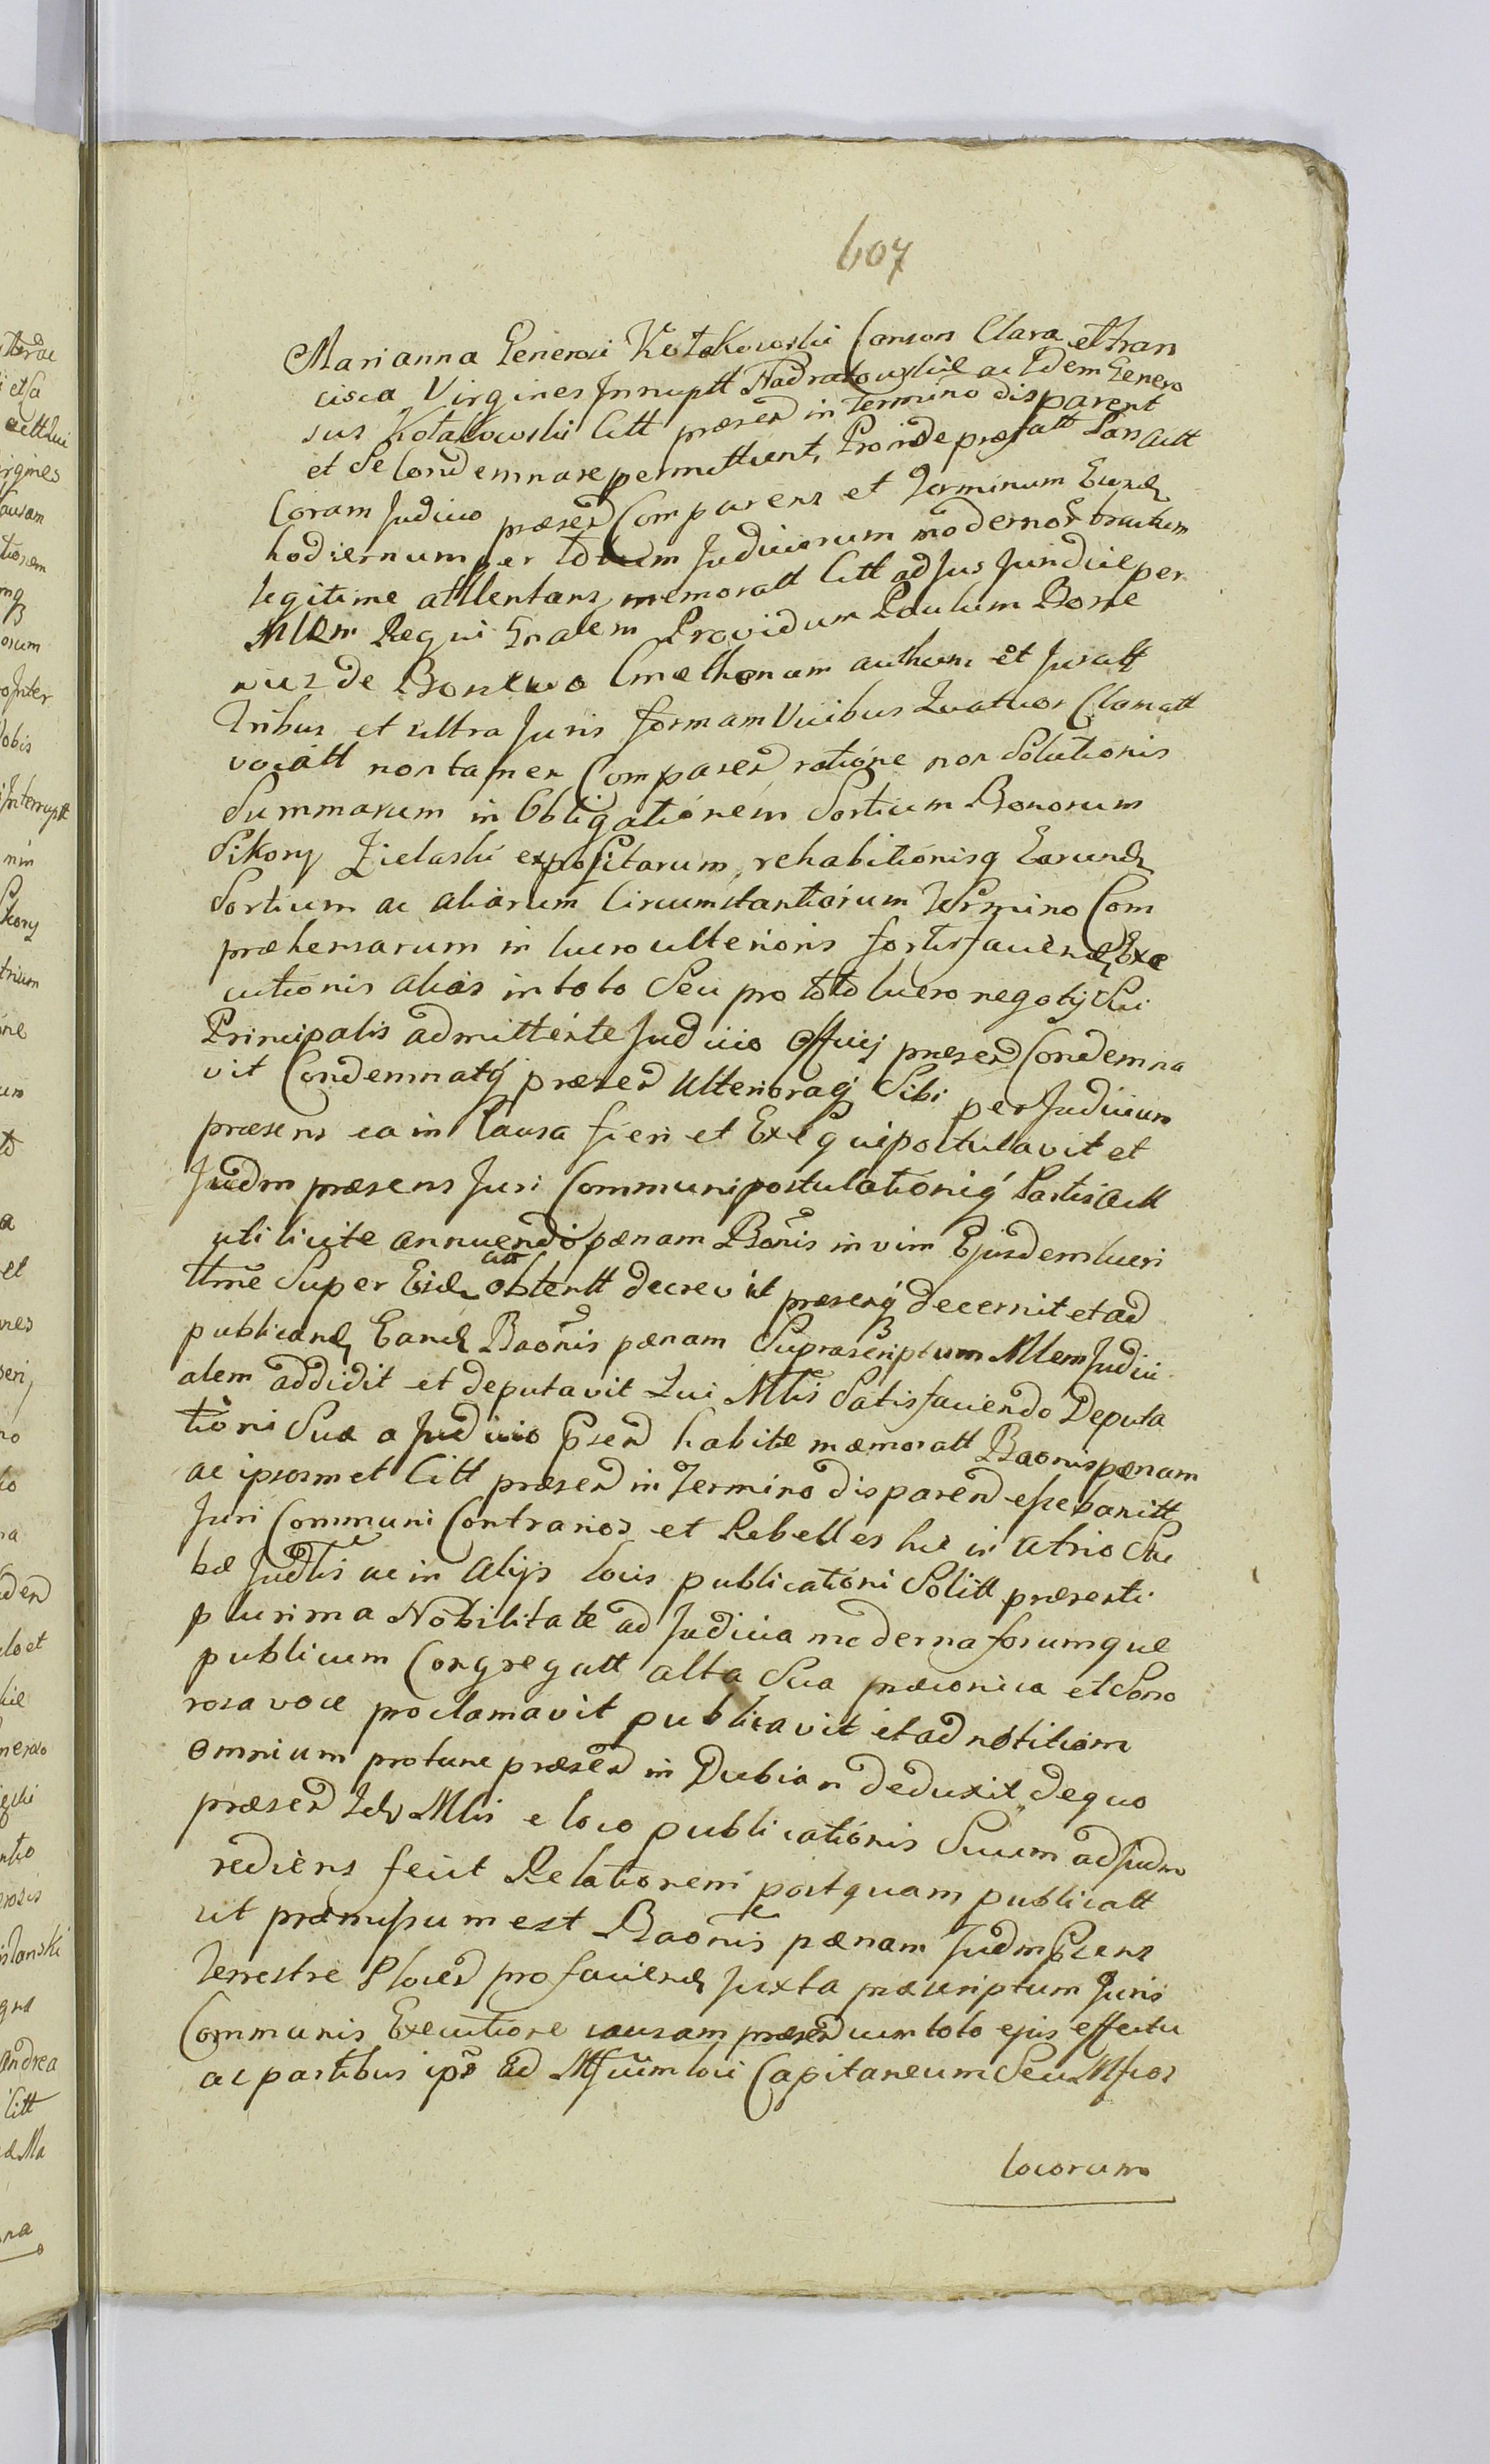 607
Marianna Generosi Kotakowski Consors Clara et Fran
cisca Virgines Innuptt Nadratowskie ac Idem Genero
sus Kotakowski Citt præsen in Termino disparent
et Se Condemnare permittunt, Proinde præfatt Pars Actt
Coram Judicio præsen Comparens et Terminum Eund
hodiernum per totum Judiciorum modernor tractum
legitime attentans memoratt Citt ad Jus Juridice per
Mlem Regni Gnalem Providum Paulum Bone
wicz de Bonewo Cmethonum authum et Juratt
Tribus et ultra Juris formam Vicibus Quatuor Clamatt
vocatt non tamen Comparen ratione non Solutionis
Summarum in Obligationem Sortium Bonorum
Sikory Zielaski expositarum, rehabitionisq Earund
Sortium ac aliarum Circumstantiarum Termino Com
præhensarum in lucro ulterioris fortis faciend Exe
cutionis alias in toto Seu pro toto lucro negotij Sui
Principalis admittente Judicio Officij præsen Condemna
vit Condemnatq præsen Ulterioraq Sibi per Judicium
præsens ea in Causa fieri et Exequi postulavit et
Judm præsens Juri Communi postulationiq Partis Actt
uti licite annuendo pænam Bonis in vim Ejusdem lucri
ttme Super Eisd Citt obtentt decrevit præsenq decernit et ad
publicand Eand Baonis pænam Suprascriptum Mlem Judici
alem addidit et deputavit Qui Mlis Satisfaciendo Deputa
tioni Suæ a Judicio Psen habitæ mæmoratt Baonis pænam
ac ipsosmet Citt præsen in Termino disparen esse banitt
Juri Communi Contrarios et Rebelles hic in atrio Stu
bæ Judlis ac in Alijs locis publicationi Solitt præsenti
plurima Nobilitate ad Judicia moderna forumque
publicum Congregatt alta Sua præconica et Sono
rosa voce proclamavit publicavit et ad notitiam
omnium pro tunc præsen in Dubian deduxit, de quo
præsen Id Mlis e loco publicationis Suum ad Judm
rediens fecit Relationem postquam publicatt
ut præmissum est Baonis pænam Judm Psens
Terrestre Plocen pro faciend Juxta præscriptum Juris
Communis Executione causam præsen cum toto ejus effectu
ac partibus ips Ad Mficum loci Capitaneum Seu Mficos
locorum